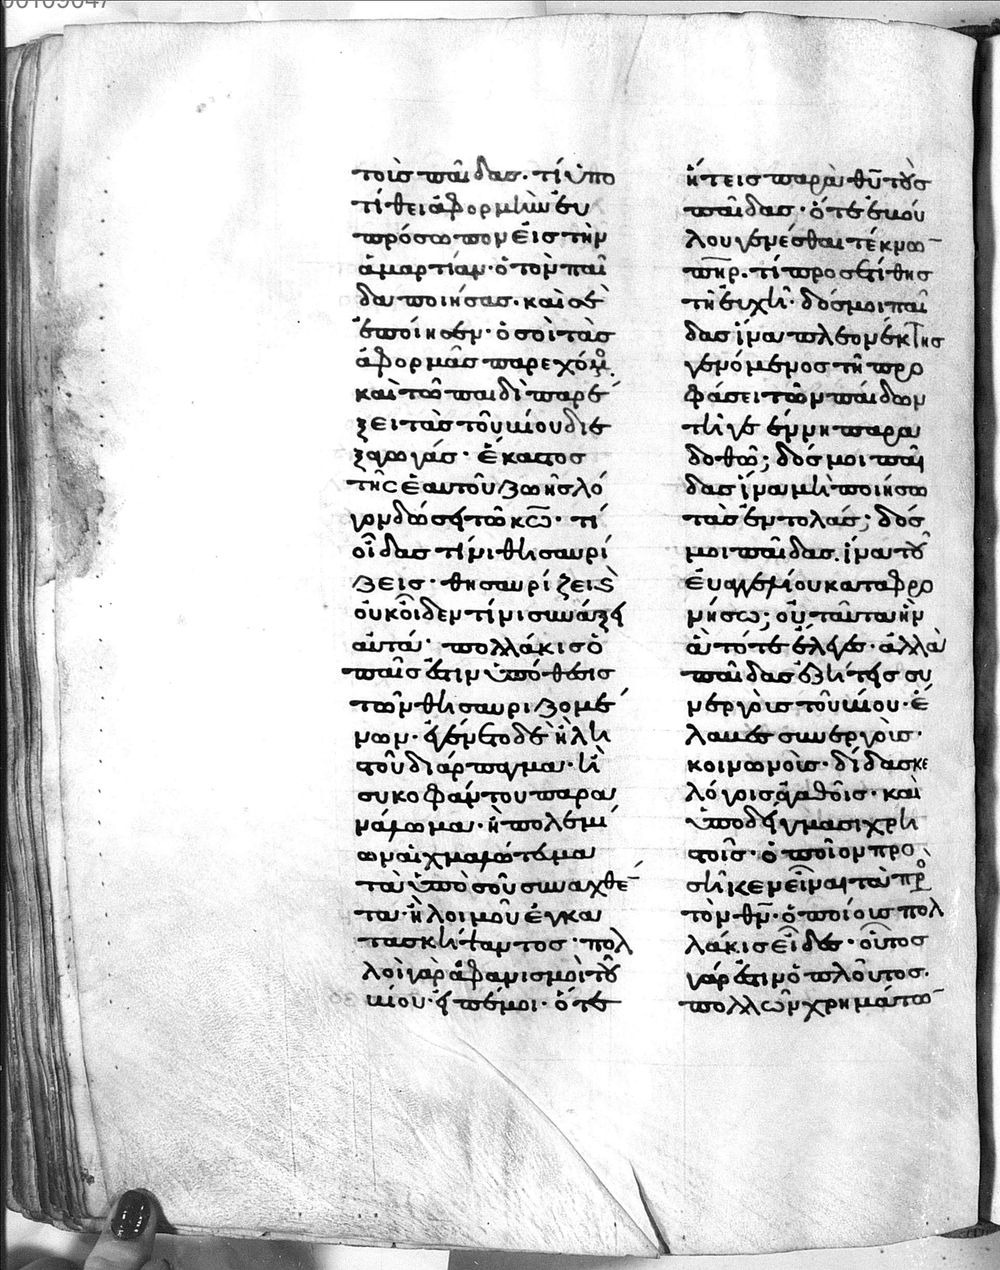 τοὺς παῖδας· τί ὑπο
τίθει ἀφορμὴν εὐ
πρόσωπον εἰς τὴν
ἁμαρτίαν· ὁ τὸν παῖ
δα ποιήσας· καὶ σὲ
ἐποίησεν· ὁ σοὶ τὰς
ἀφορμὰς παρεχόμ
καὶ τῶ παιδὶ παρέ
ξει τὰς τοῦ βίου διε
ξαγωγάς· ἕκαστος
τῆς ἑαυτοῦ ζωῆς λό
γον δώσει τῶ κω· τί
οἶδας τίνι θησαυρί
ζεις· θησαυρίζει καὶ
οὐκ οἶδεν τίνι συνάξει
αὐτά· πολλάκις ὁ
παῖς ἔστιν ὑπόθεσις
τῶν θησαυριζομέ
νων· ἐγένετο δὲ ἢ λη
στοῦ διάρπαγμα· ἢ
συκοφάντου παρα
νάλωμα· ἢ πολεμί
ων αἰχμαλώτευμα
τὰ ὑπὸ σοῦ συναχθέ
τα· ἢ λοιμοῦ ἐγκα
τασκήψαντος· πολ
λοὶ γὰρ ἀφανισμοὶ τοῦ
βίου· εἰπέ μοι· ὅτε
ἤτεις παρὰ θυ τοὺς
παῖδας· ὅτε ἐμοῦ
λου γενέσθαι τέκνω
πηρ. τί προσετίθης
τῆ εὐχῆ· δός μοι παῖ
δας ἵνα πλεονέκτης
γενόμενος τῆ προ
φάσει τῶν παίδων
τῆ γεέννη παρα
δοθῶ; δός μοι παῖ
δας ἵνα μὴ ποιήσω
τὰς ἐντολάς; δός
μοι παῖδας. ἵνα τοῦ
εὐαγγελίου καταφρο
νήσω; οὐ ταῦτα ἦν
ἃ τότε ἔλεγες· ἀλλὰ
παῖδας ἐζήτεις συ
νεργοὺς τοῦ βίου· ἔ
λαβες συνεργούς·
κοινωνούς· δίδασκε
λόγοις ἀγαθοῖς· καὶ
ὑποδείγμασι χρη
στοῖς· ὁποῖον προ
σῆκεν εἶναι τὰ πρ
τὸν θν· ὁποίοις πολ
λάκις εἶδες· οὗτος
γάρ ἐστιν ὁ πλοῦτος·
πολλῶν χρημάτω